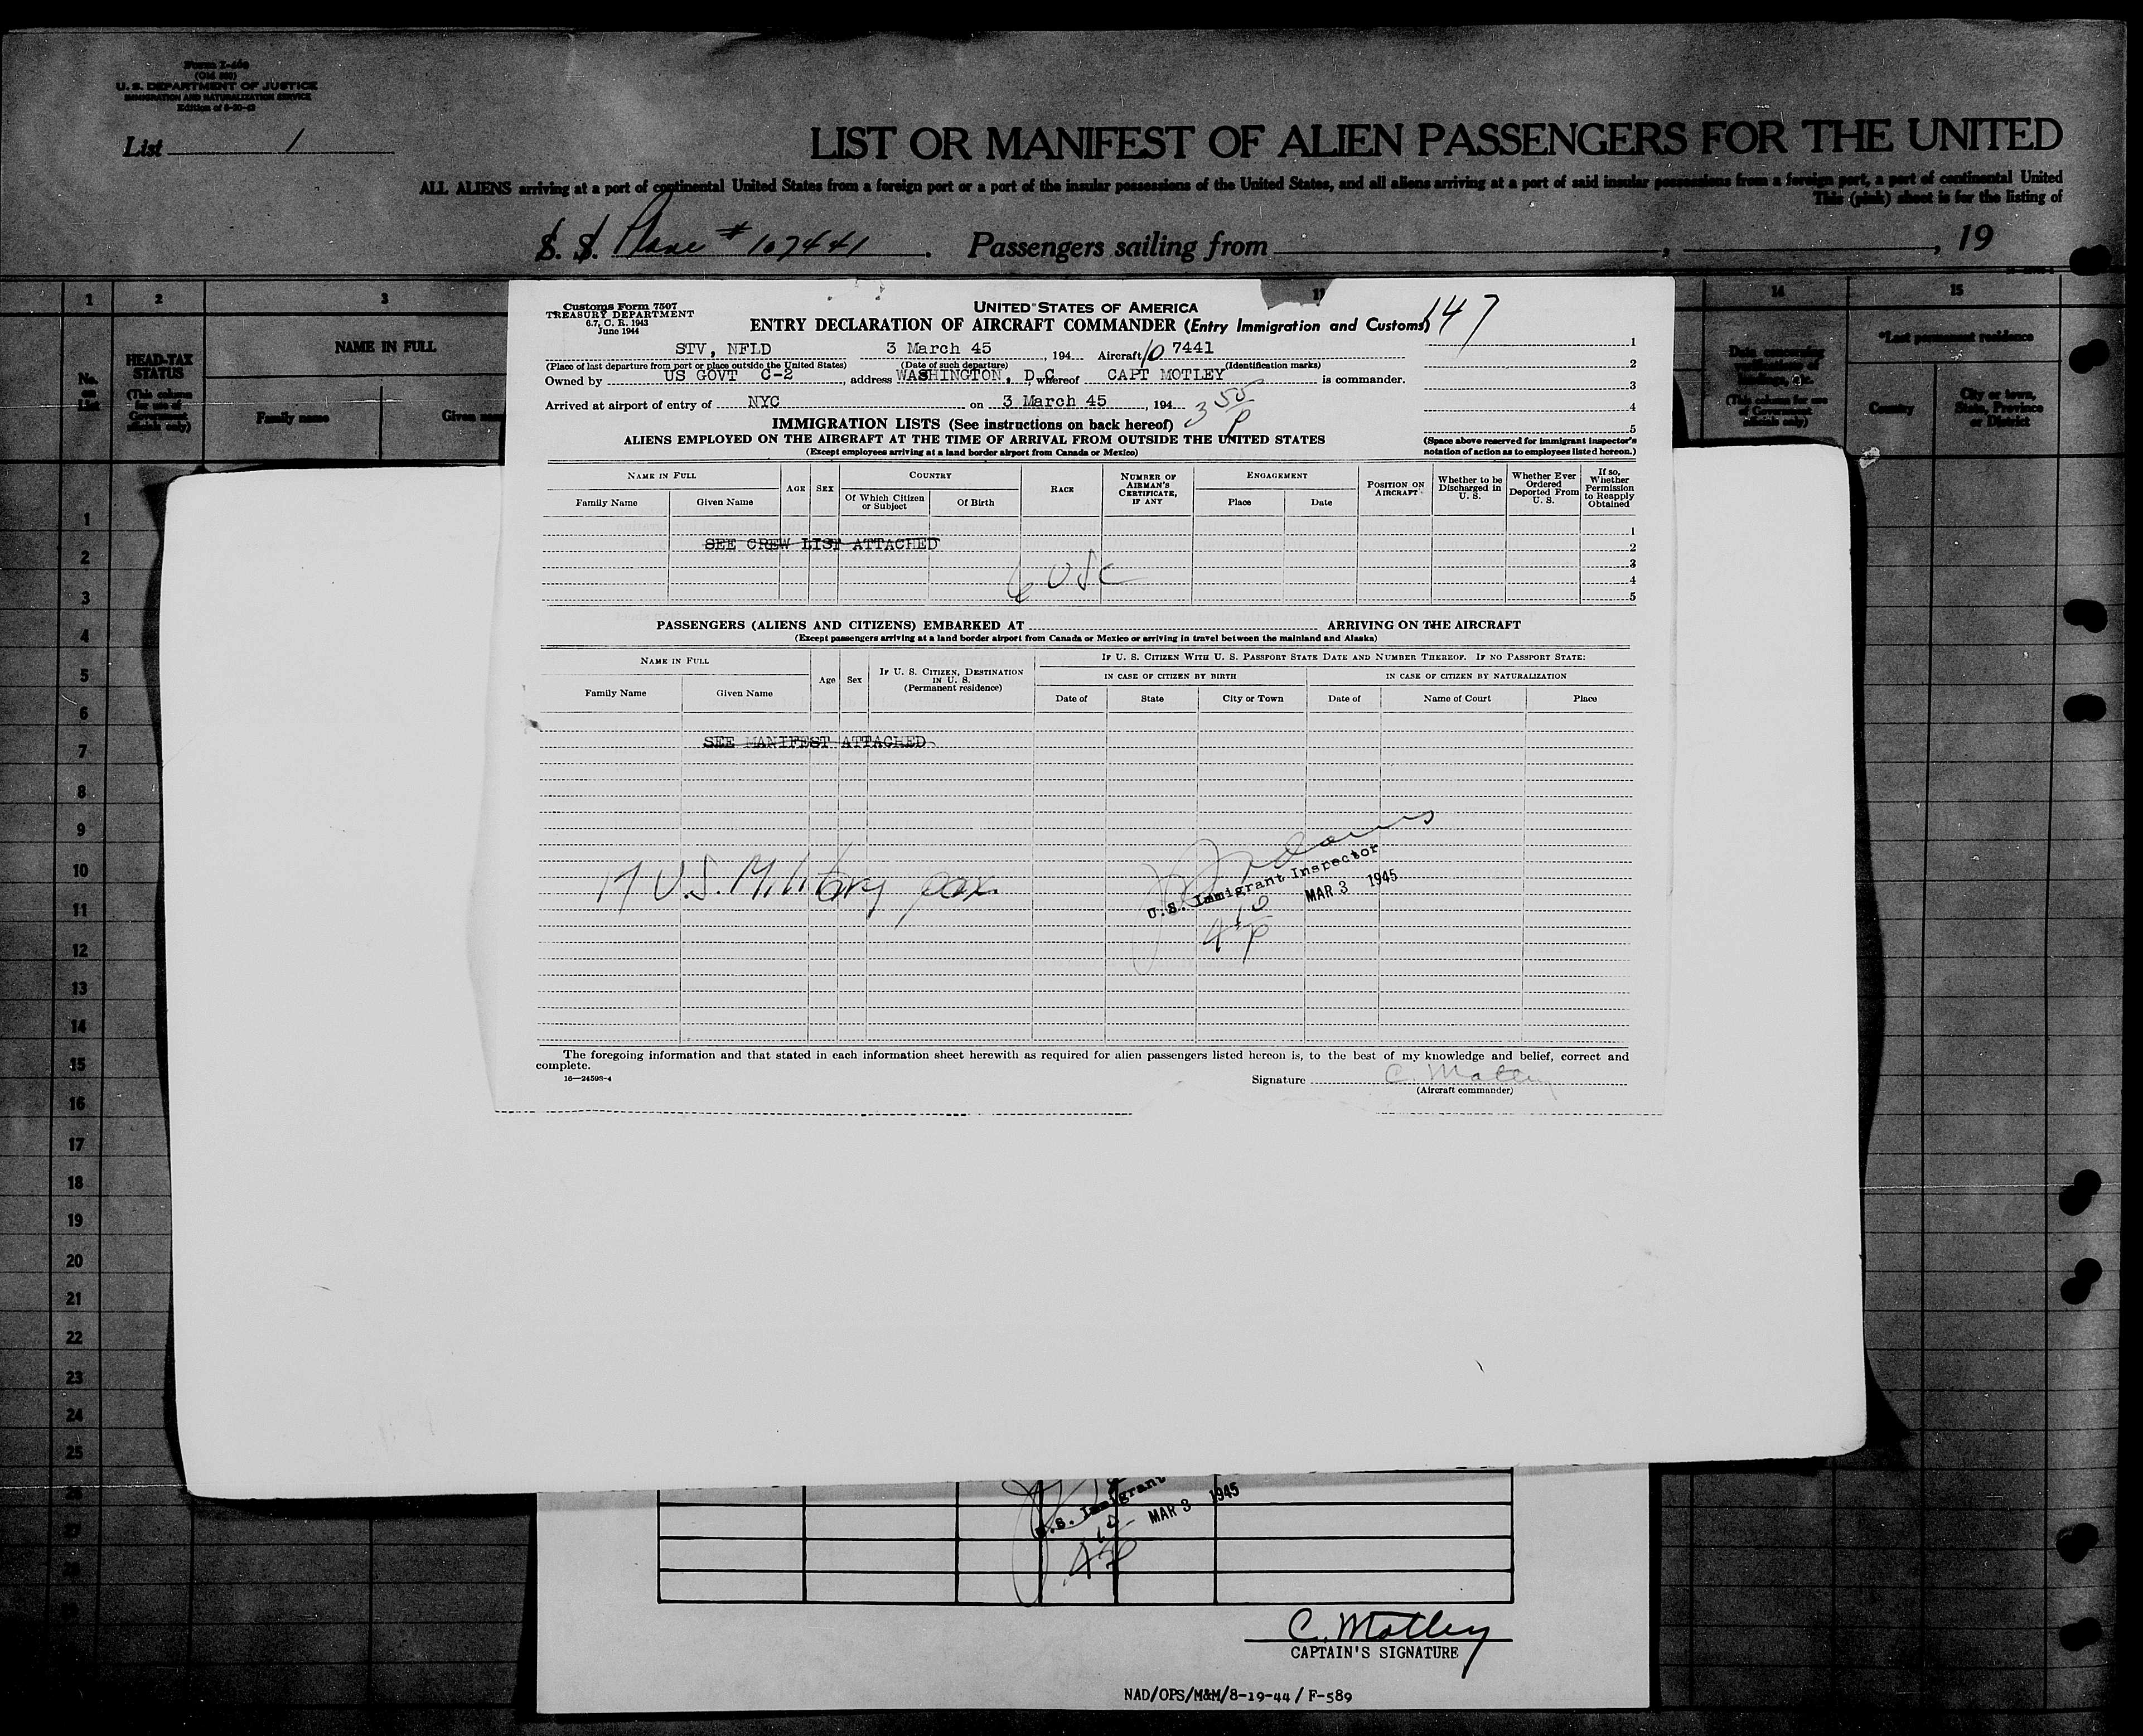 Form I-466
(Old 500)
U. S. DEPARTMENT OF JUSTICE
IMMIGRATION AND NATURALIZATION SERVICE
List 1
LIST OR MANIFEST OF ALIEN PASSENGERS FOR THE UNITED
ALL ALIENS arriving at a port of continental United States from a foreign port or a port of the insular possessions of the United States, and all aliens arriving at a port of said insular possessions from a foreign port, a port of continental United
This (pink) sheet is for the listing of
S. S. Plane # 107441. Passengers sailing from , , 19
1 2 3 14 15
No. on List
HEAD-TAX STATUS
(This column for use of Government officials only)
NAME IN FULL
Family name Given name
(This column for use of Government officials only)
*Last permanent residence
Country City or town, State, Province or District
Customs Form 7507
TREASURY DEPARTMENT
6.7, C. R. 1943
June 1944
UNITED STATES OF AMERICA
147
ENTRY DECLARATION OF AIRCRAFT COMMANDER (Entry Immigration and Customs)
STV, NFLD 3 March 45, 194 Aircraft 10 7441
(Place of last departure from port or place outside the United States) (Date of such departure) (Identification marks)
Owned by US GOVT C-2, address WASHINGTON, D.C., whereof CAPT MOTLEY is commander.
Arrived at airport of entry of NYC on 3 March 45, 194
3 50 P
1
2
3
4
5
IMMIGRATION LISTS (See instructions on back hereof)
ALIENS EMPLOYED ON THE AIRCRAFT AT THE TIME OF ARRIVAL FROM OUTSIDE THE UNITED STATES
(Except employees arriving at a land border airport from Canada or Mexico)
(Space above reserved for immigrant inspector's notation of action as to employees listed hereon.)
NAME IN FULL
Family Name Given Name
AGE SEX
COUNTRY
Of Which Citizen or Subject Of Birth
RACE
NUMBER OF AIRMAN'S CERTIFICATE, IF ANY
ENGAGEMENT
Place Date
POSITION ON AIRCRAFT
Whether to be Discharged in U. S.
Whether Ever Ordered Deported From U. S.
If so, Whether Permission to Reapply Obtained
1
SEE CREW LIST ATTACHED 2
3
6 USC 4
5
PASSENGERS (ALIENS AND CITIZENS) EMBARKED AT ARRIVING ON THE AIRCRAFT
(Except passengers arriving at a land border airport from Canada or Mexico or arriving in travel between the mainland and Alaska)
NAME IN FULL
Family Name Given Name
Age Sex
IF U. S. CITIZEN, DESTINATION IN U. S.
(Permanent residence)
IF U. S. CITIZEN WITH U. S. PASSPORT STATE DATE AND NUMBER THEREOF. IF NO PASSPORT STATE:
IN CASE OF CITIZEN BY BIRTH IN CASE OF CITIZEN BY NATURALIZATION
Date of State City or Town Date of Name of Court Place
SEE MANIFEST ATTACHED
17 U.S. Military pax.
U.S. Immigrant Inspector
MAR 3 1945
4 10 P
The foregoing information and that stated in each information sheet herewith as required for alien passengers listed hereon is, to the best of my knowledge and belief, correct and
complete.
16—24598-4
Signature C. Motley
(Aircraft commander)
1
2
3
4
5
6
7
8
9
10
11
12
13
14
15
16
17
18
19
20
21
22
23
24
25
26
27
28
U.S. Immigrant
MAR 3 1945
4 10 P
C. Motley
CAPTAIN'S SIGNATURE
NAD/OPS/M&M/8-19-44 / F-589